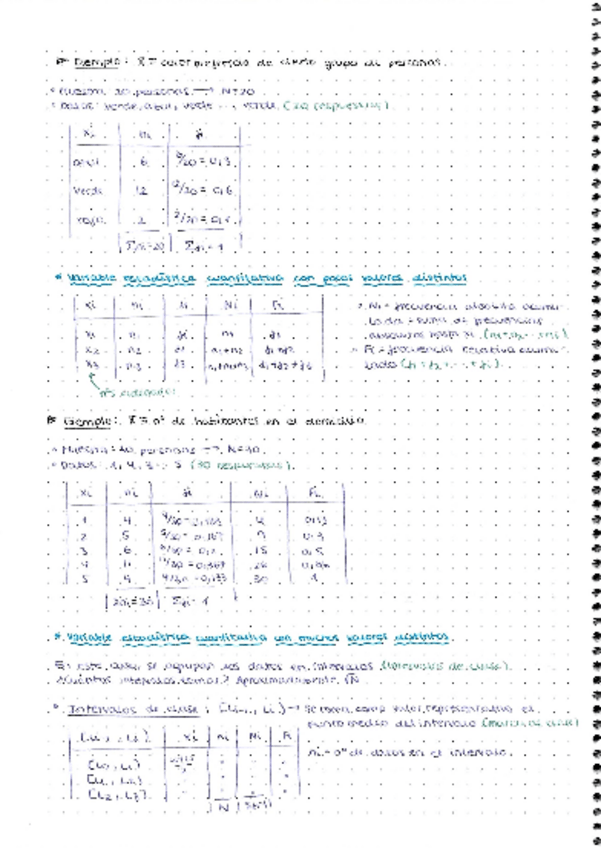 Ejemplo: X = color preferido de cierto grupo de personas.
Muestra: 20 personas → N=20
Datos: verde, azul, verde ..., verde (20 respuestas)
xi ni fi
azul 6 6/20 = 0,3
verde 12 12/20 = 0,6
rojo 2 2/20 = 0,1
Σni=20 Σfi=1
* Variable estadística cuantitativa con pocos valores distintos
xi ni fi Ni Fi
x1 n1 f1 n1 f1
x2 n2 f2 n1+n2 f1+f2
x3 n3 f3 n1+n2+n3 f1+f2+f3
Ni = frecuencia absoluta acumu-
lada = suma de frecuencias
absolutas hasta xi
Fi = frecuencia relativa acumu-
lada
Ejemplo: X = nº de habitantes en el domicilio
Muestra: 30 personas → N=30
Datos: 1, 4, 3 ... 5 (30 respuestas)
xi ni fi Ni Fi
1 4 4/30 = 0,133 4
2 5 5/30 = 0,167 9 0,3
3 6 6/30 = 0,2 15 0,5
4 11 11/30 = 0,367 26
5 4 4/30 = 0,133 30 1
Σni=30 Σfi=1
* Variable estadística cuantitativa con muchos valores distintos
En este caso, se agrupan los datos en intervalos (intervalos de clase).
¿Cuántos intervalos tomar? Aproximadamente √N
Intervalos de clase: → Se toma como valor representativo el
punto medio del intervalo (marca de clase)
xi ni Ni Fi
ni = nº de datos en el intervalo
N